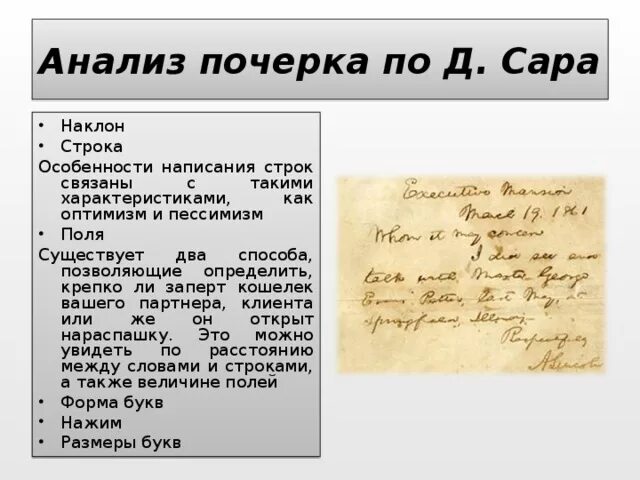 Анализ почерка по Д. Сара
• Наклон
• Строка
Особенности написания строк
связаны с такими
характеристиками, как
оптимизм и пессимизм
• Поля
Существует два способа,
позволяющие определить,
крепко ли заперт кошелек
вашего партнера, клиента
или же он открыт
нараспашку. Это можно
увидеть по расстоянию
между словами и строками,
а также величине полей
• Форма букв
• Нажим
• Размеры букв
Executive Mansion
March 19. 1861
Whom it may concern
I did see and
talk with Master George
Evans Patten, last May, at
Springfield, Illinois.
Respectfully
A. Lincoln